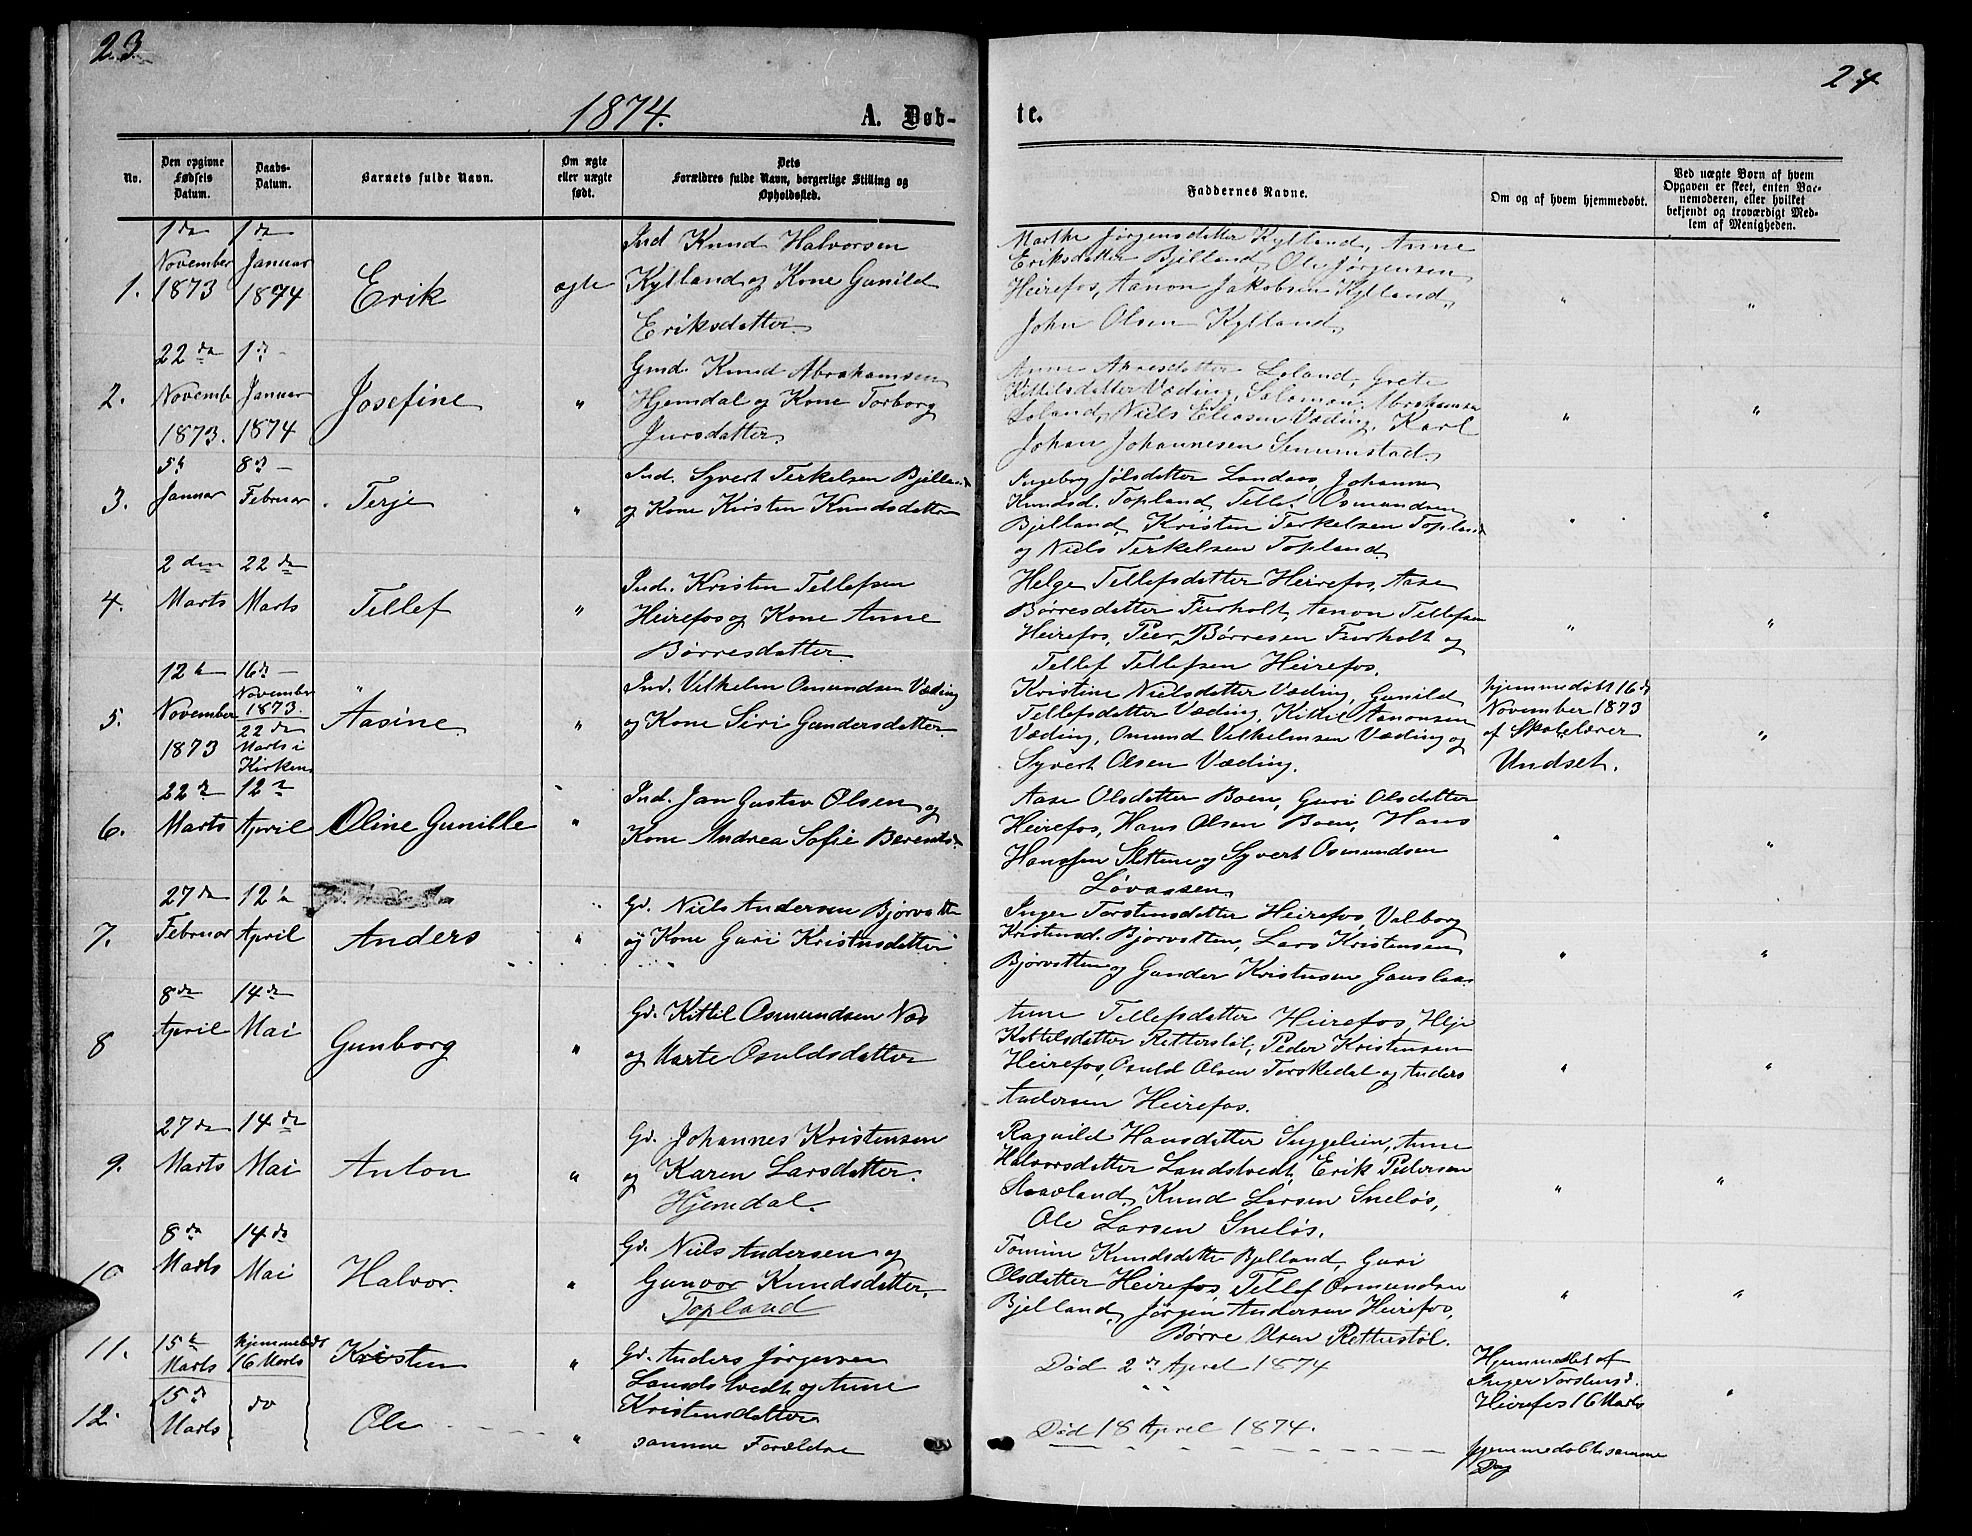 23.
24
1874. A. Døb-
te.
No.
Den opgivne Fødsels Datum.
Daabs-Datum.
Barnets fulde Navn.
Om ægte eller uægte født.
Dets Forældres fulde Navn, borgerlige Stilling og Opholdssted.
Faddernes Navne.
Om og af hvem hjemmedøbt.
Ved uægte Børn af hvem Opgaven er skeet, enten Barnemoderen, eller hvilket bekjendt og troværdigt Medlem af Menigheden.
1.
1 da November 1873
1 da Januar 1874
Erik
ægte
Ind Knud Halvorsen
Kylland og Kone Gunild
Eriksdatter
Marthe Jørgensdatter Kylland, Anne
Eriksdatter Bjelland, Ole Jørgensen
Heirefos, Aanon Jakobsen Kylland,
John Olsen Kylland
" "
2.
22 da Novemb 1873.
1 d Januar 1874
Josefine
"
Gmd. Knud Abrahamsen
Hjemdal og Kone Torborg
Jursdatter
Anne Aanesdatter Loland, Grete
Kittilsdatter Væding, Salomon Abrahamsen
Loland, Niels Eliasen Væding, Karl
Johan Johannesen Senumstad.
" "
3.
5 Januar
8 d Februar
Terje
"
Ind. Syvert Terkelsen Bjelland
og Kone Kirsten Knudsdatter
Ingeborg Jølsdatter Landaas, Johanne
Knudsd. Topland, Tellef Osmundsen
Bjelland, Kristen Terkelsen Topland
og Niels Terkelsen Topland.
" "
4.
2 den Marts
22 da Marts
Tellef
"
Ind. Kristen Tellefsen
Heirefos og Kone Anne
Børresdatter
Helge Tellefsdatter Heirefos, Aase
Børresdatter Furholt, Aanon Tellefsen
Heirefos, Peer Børresen Furholt og
Tellef Tellefsen Heirefos.
" "
5.
12 November 1873
16 d November 1873.
22 da Marts i Kirken
Aasine
"
Ind. Vilhelm Osmundsen Væding
og Kone Siri Gundersdatter
Kristine Nielsdatter Væding, Gunild
Tellefsdatter Væding, Kittil Aanonsen
Væding, Osmund Vilhelmsen Væding og
Syvert Olsen Væding.
hjemmedøbt 16 d
November 1873
af Skolelærer
Undset.
"
6.
22 Marts
12 April
Oline Gunille
"
Ind. Jan Gustav Olsen og
Kone Andrea Sofie Berentsd.
Aase Olsdatter Boen, Guri Olsdatter
Heirefos, Hans Olsen Boen, Hans
Hansen Sletten og Syvert Osmundsen
Løvaasen
" "
7.
27 da Februar
12 April
Anders
"
Gd. Niels Andersen Bjorvatten
og Kone Guri Kristensdatter
Inger Torstensdatter Heirefos, Valborg
Kristensd. Bjorvatten, Lars Kristensen
Bjorvatten og Gunder Kristensen Gauslaa
" "
8
8 da April
14 da Mai
Gunborg
"
Gd. Kittil Osmundsen Næs
og Marte Osuldsdatter
Anne Tellefsdatter Heirefos, Helje
Kittelsdatter Retterstøl, Peder Kristensen
Heirefos, Osuld Olsen Torskedal og Anders
Andersen Heirefos.
" "
9.
27 da Marts
14 da Mai
Anton
"
Gd. Johannes Kristensen
og Karen Larsdatter.
Hjemdal.
Ragnild Hansdatter Suggelien, Anne
Halvorsdatter Landstvedt, Erik Pedersen
Staavland, Knud Larsen Sneløs,
Ole Larsen Sneløs.
" "
10
8 da Marts
14 da Mai
Halvor.
"
Gd. Niels Andersen og
Gunvor Knudsdatter,
Topland
Tomine Knudsdatter Bjelland, Guri
Olsdatter Heirefos, Tellef Osmundsen
Bjelland, Jørgen Andersen Heirefos,
Børre Olsen Retterstøl.
" "
11.
15 Marts
hjemmedøbt 16 Marts
Kristen
"
Gd. Anders Jørgensen
Landstvedt og Anne
Kristensdatter
Død 2 April 1874
Hjemmedøbt af
Inger Torstensd.
Heirefos 16 Marts
"
12.
15 d Marts
do
Ole
"
samme Forældre
Død 18 April 1874.
hjemmedøbt samme
Dag